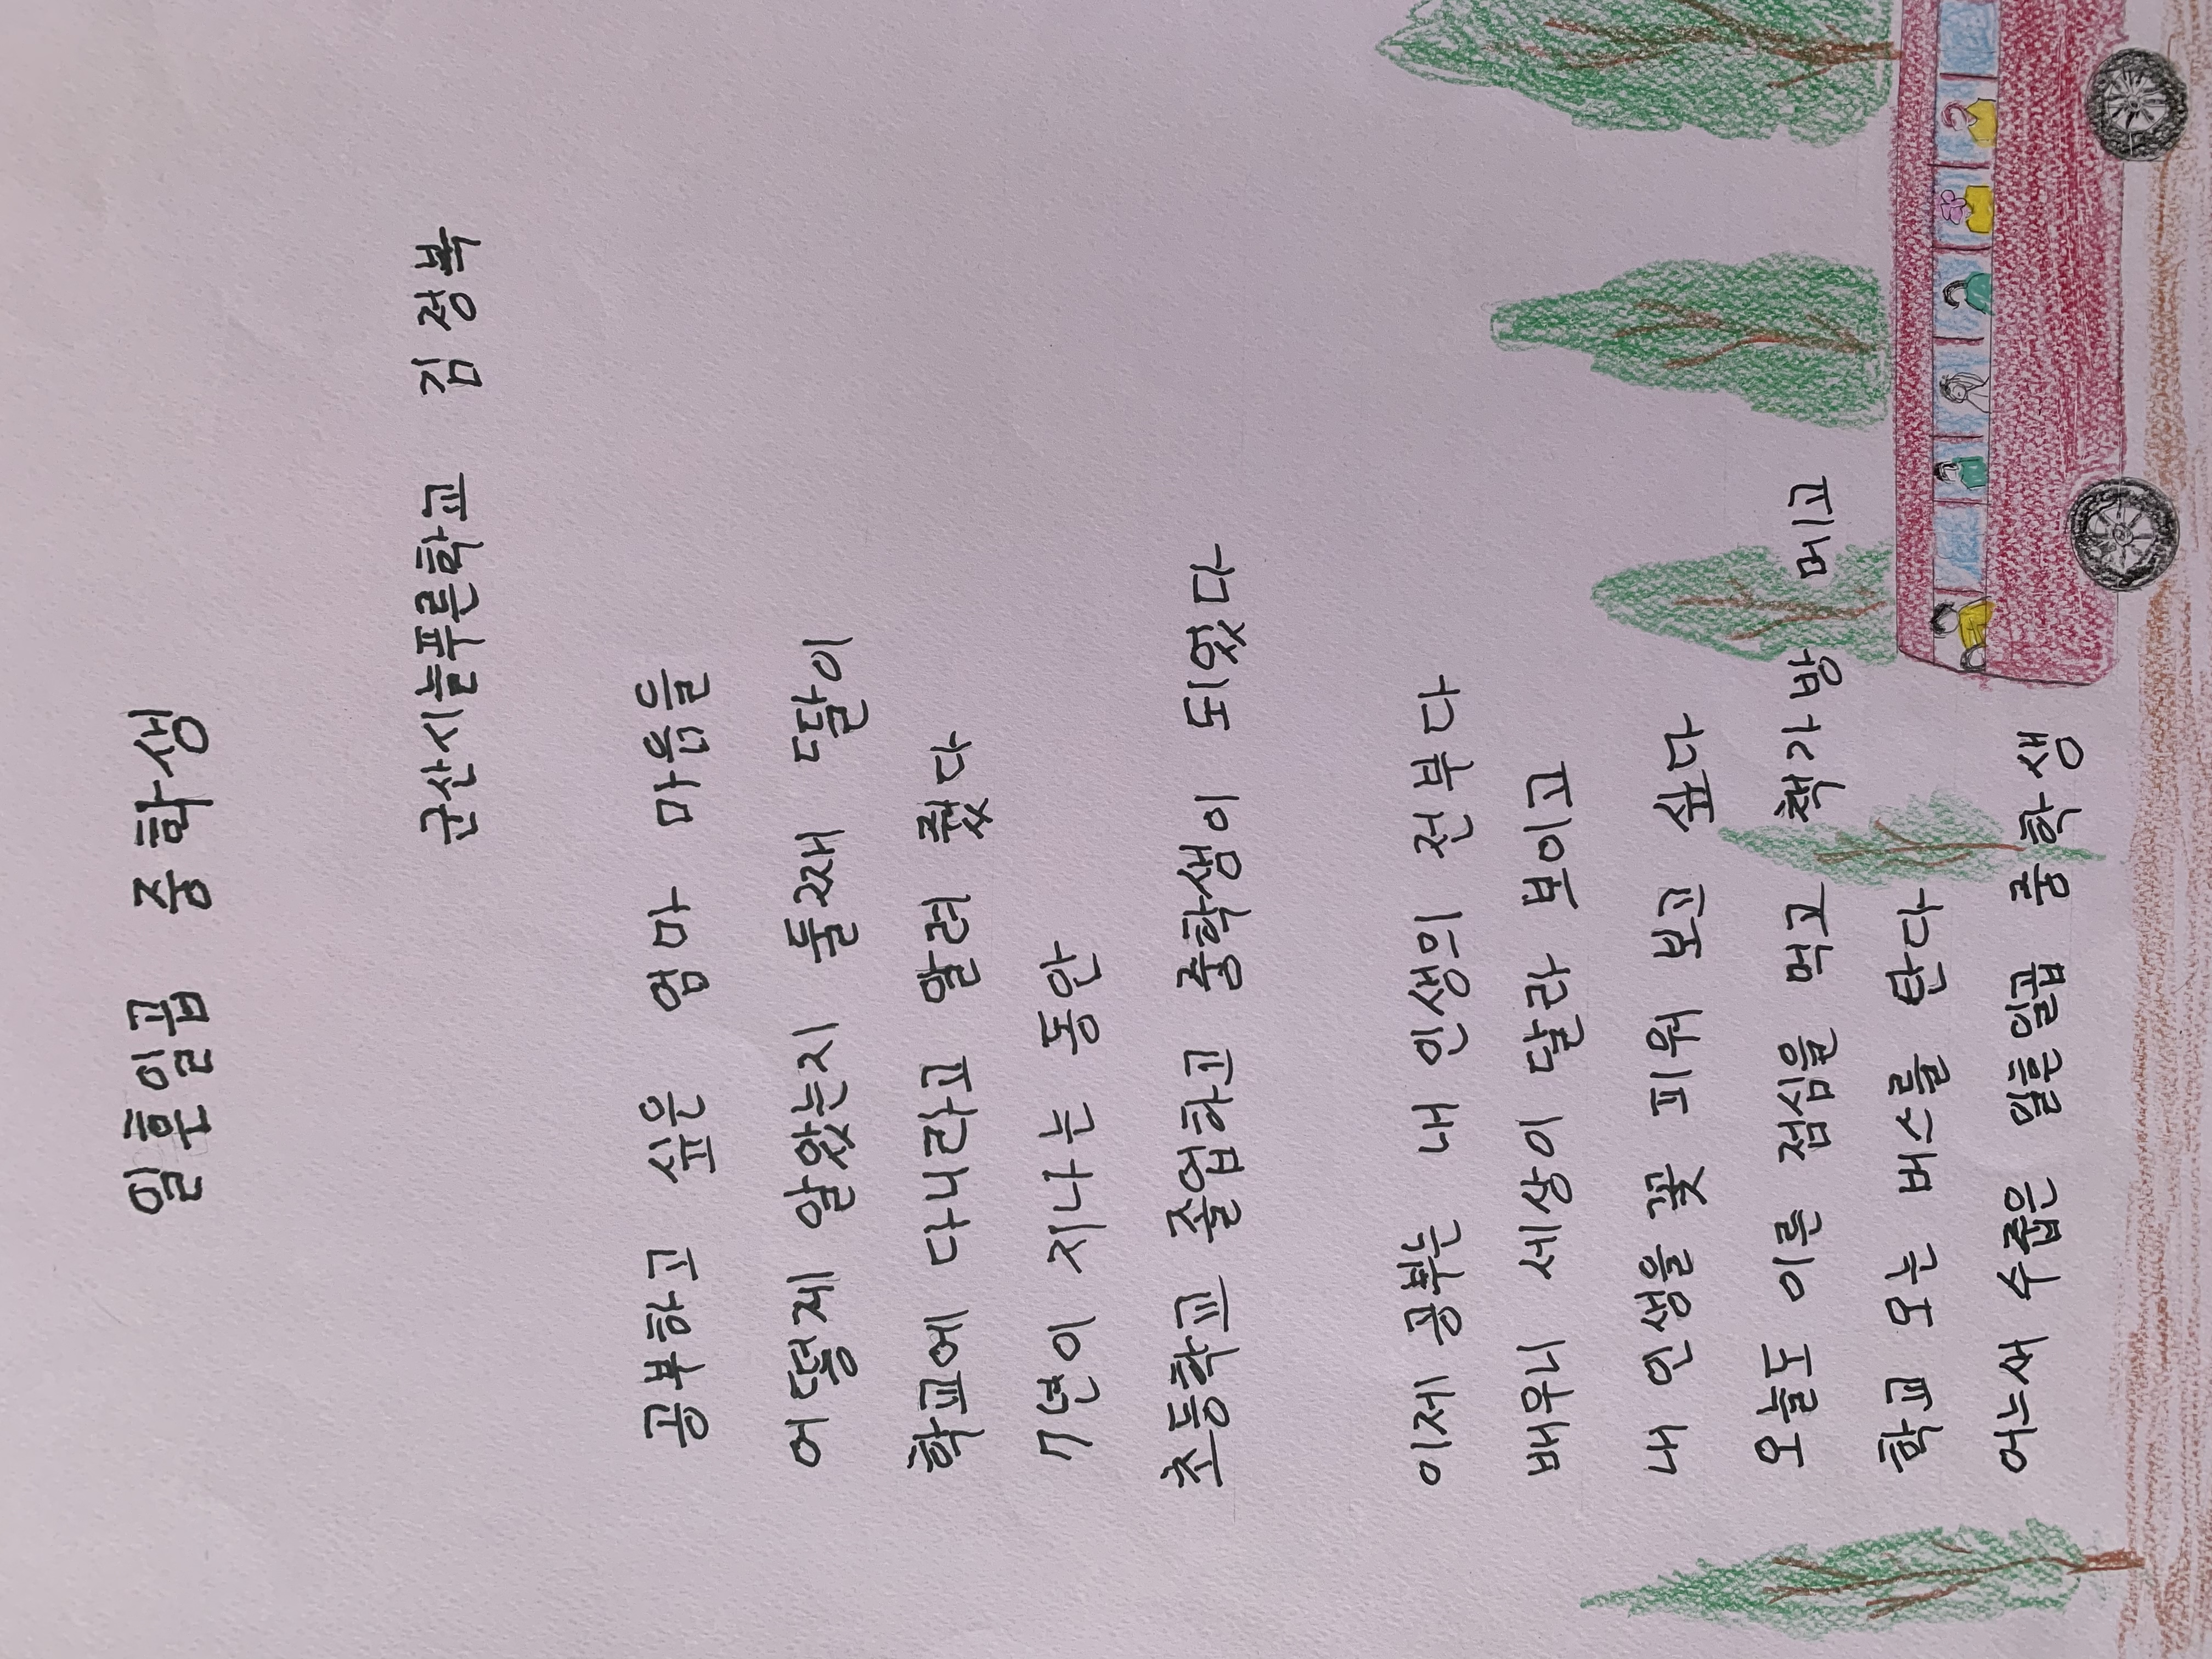 일흔일곱 중학생
군산시늘푸른학교 김정복
공부하고 싶은 엄마 마음을
어떻게 알았는지 둘째 딸이
학교에 다니라고 알려 줬다
7년이 지나는 동안
초등학교 졸업하고 중학생이 되었다
이제 공부는 내 인생의 전부다
배우니 세상이 달라 보이고
내 인생을 꽃 피워 보고 싶다
오늘도 이른 점심을 먹고 책가방 메고
학교 오는 버스를 탄다
어느새 수줍은 일흔일곱 중학생